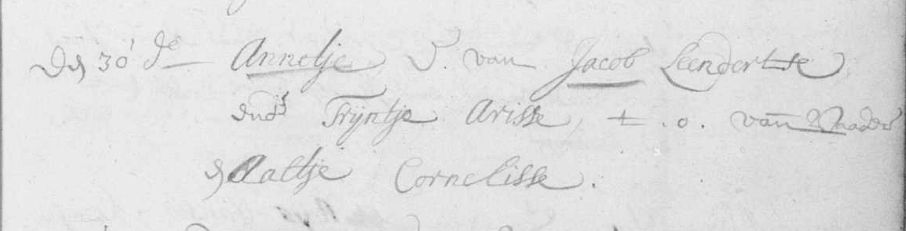 Den 30' de Annetje D. van Jacob Leendertse,
ende Trijntje Arisse, t. o. van Vader
Aaltje Cornelisse.